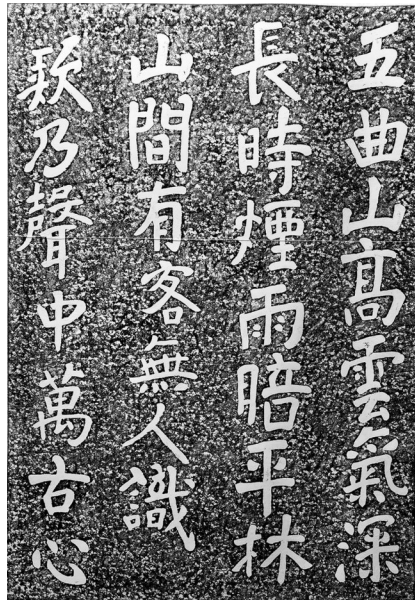 五曲山髙雲氣深
長時煙雨暗平林
山間有客無人識
欸乃聲中萬古心